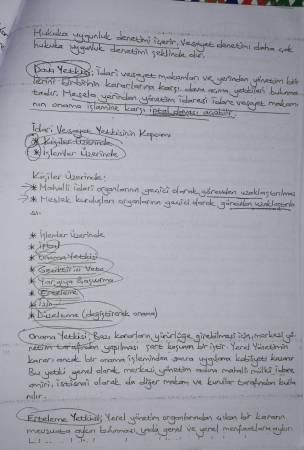 Hukuka uygunluk denetimi içerir. Vesayet denetimi daha çok
hukuka uygunluk denetimi şeklinde dir.
Dava Yetkisi; İdari vesayet makamları ve yerinden yönetim bir
lerini birbirinin kararlarına karşı dava açma yetkileri bulunma
tadır. Mesela yerinden yönetim idaresi idare vesayet makam
nın onama işlemine karşı iptal davası açabilir.
İdari Vesayet Yetkisinin Kapsamı
* Kişiler Üzerinde
* İşlemler Üzerinde
Kişiler Üzerinde:
* Mahalli idari organlarının geçici olarak görevden uzaklaştırılması
* Meslek kuruluşları organlarının geçici olarak görevden uzaklaştırılma
sı.
* İşlemler Üzerinde
* İptal
* Onama Yetkisi
* Geciktirici Veto
* Yargıya Başvurma
* Erteleme
* İzin
* Düzeltme (değiştirerek onama)
Onama Yetkisi; Bazı kararların, yürürlüğe girebilmesi için, merkezi yö
netim tarafından yapılması şart koşulan bir iştir. Yerel Yönetimin
kararı ancak bir onama işleminden sonra uygulama kabiliyeti kazanır
Bu yetki genel olarak merkezi yönetim adına mahalli mülki idare
amiri, istisnai olarak da diğer makam ve kurullar tarafından kulla
nılır.
Erteleme Yetkisi; Yerel yönetim organlarından çıkan bir kararın
mevzuata aykırı bulunması, yada genel ve yerel menfaatlara aykırı